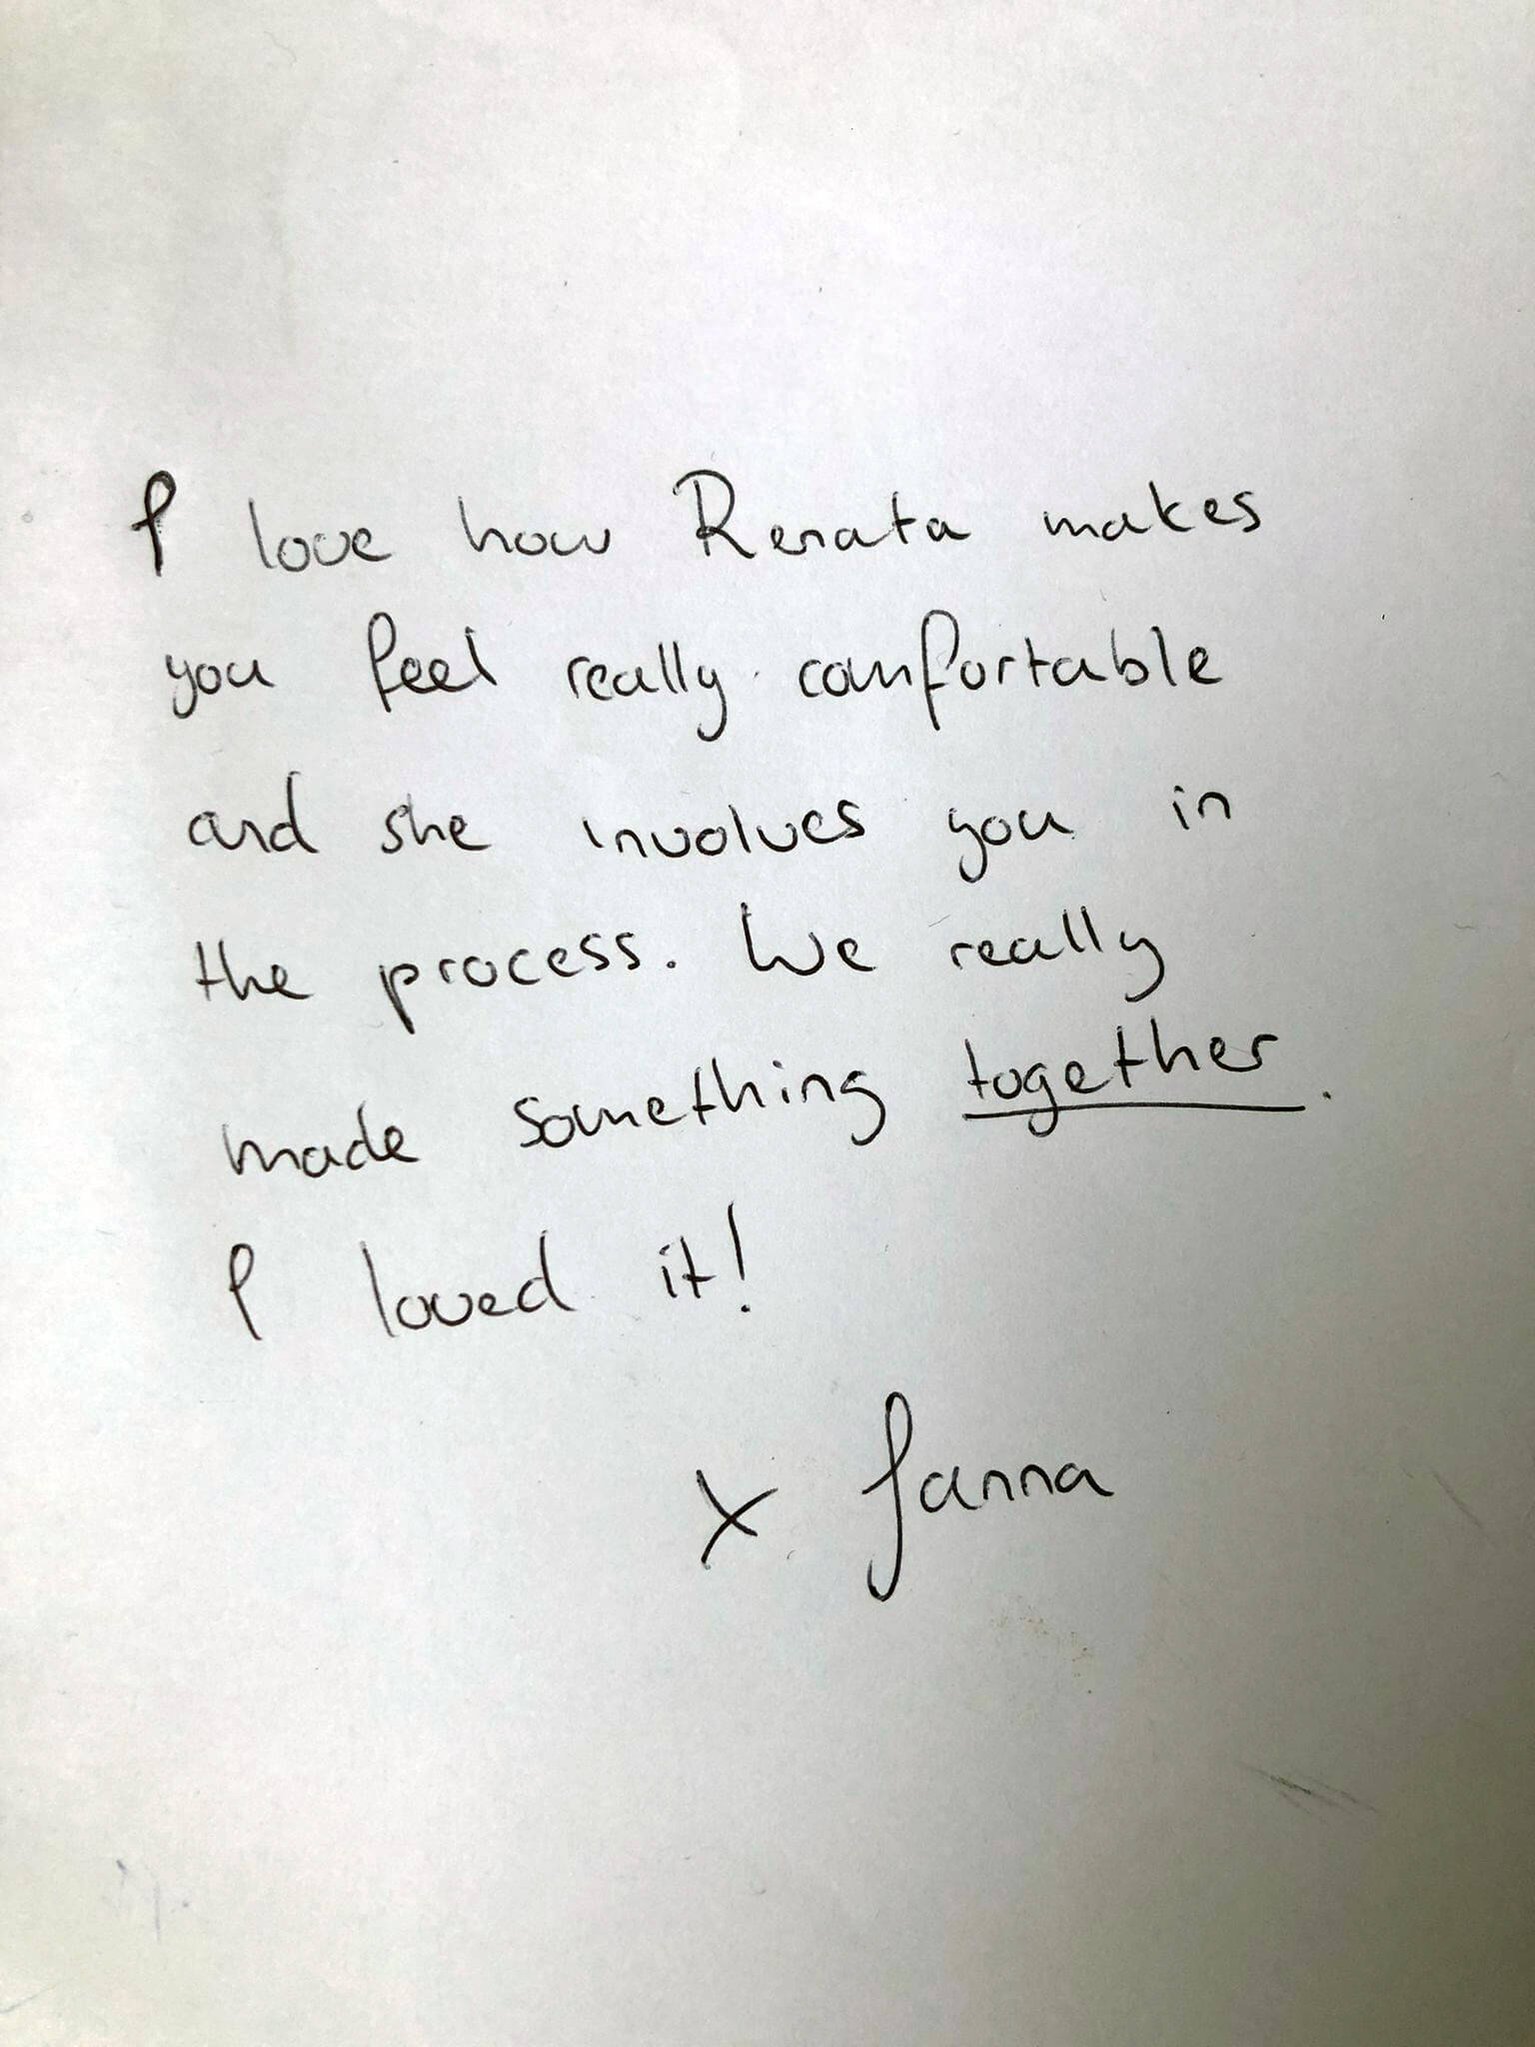 I love how Renata makes
you feel really comfortable
and she involves you in
the process. We really
made something together.
I loved it!
x Janna